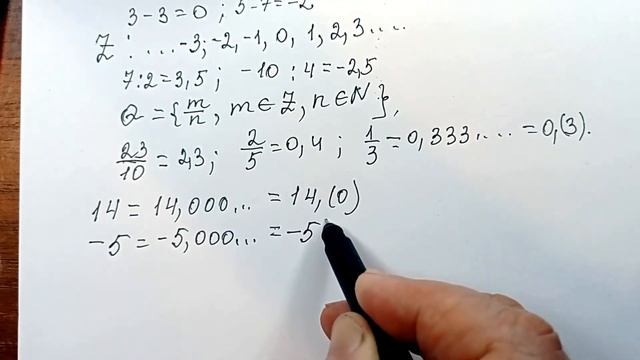 3-3=0 ; 3-7=-2
Z : ....-3;-2,-1, 0, 1, 2, 3....
7:2=3,5 ; -10 : 4=-2,5
Q = {m/n, m∈Z, n∈N},
23/10 = 2,3 ; 2/5 = 0,4 ; 1/3 = 0,333.... = 0,(3).
14 = 14,000... = 14,(0)
-5 = -5,000... = -5